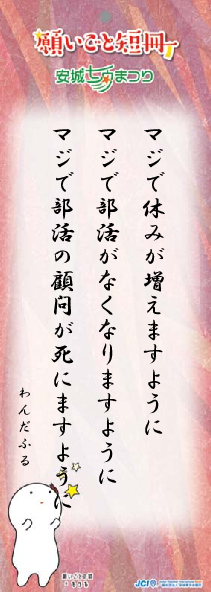 願いごと短冊
安城七夕まつり
マジで休みが増えますように
マジで部活がなくなりますように
マジで部活の顧問が死にますように
わんだふる
願いごと短冊
JCI